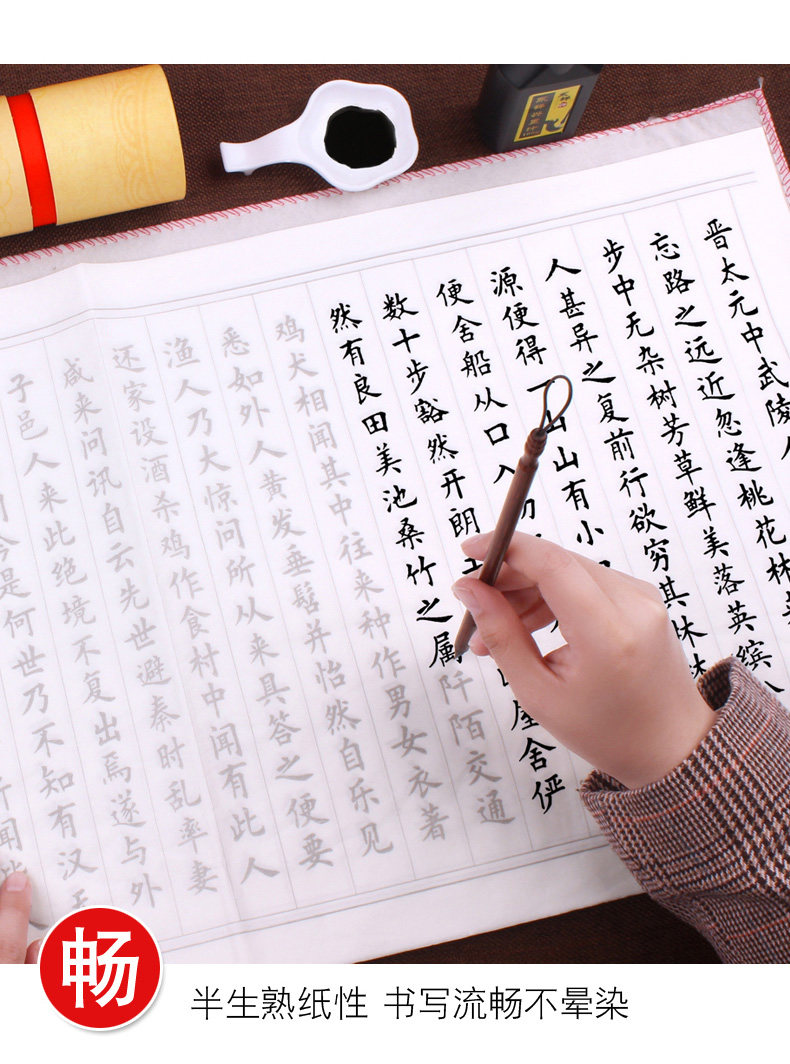 晋太元中武陵人
忘路之远近忽逢桃花林夹
步中无杂树芳草鲜美落英缤
人甚异之复前行欲穷其林林
源便得一山山有小
便舍船从口入初
数十步豁然开朗土 屋舍俨
然有良田美池桑竹之属阡陌交通
鸡犬相闻其中往来种作男女衣著
悉如外人黄发垂髫并怡然自乐见
渔人乃大惊问所从来具答之便要
还家设酒杀鸡作食村中闻有此人
咸来问讯自云先世避秦时乱率妻
子邑人来此绝境不复出焉遂与外
今是何世乃不知有汉无
所闻
畅
半生熟纸性 书写流畅不晕染